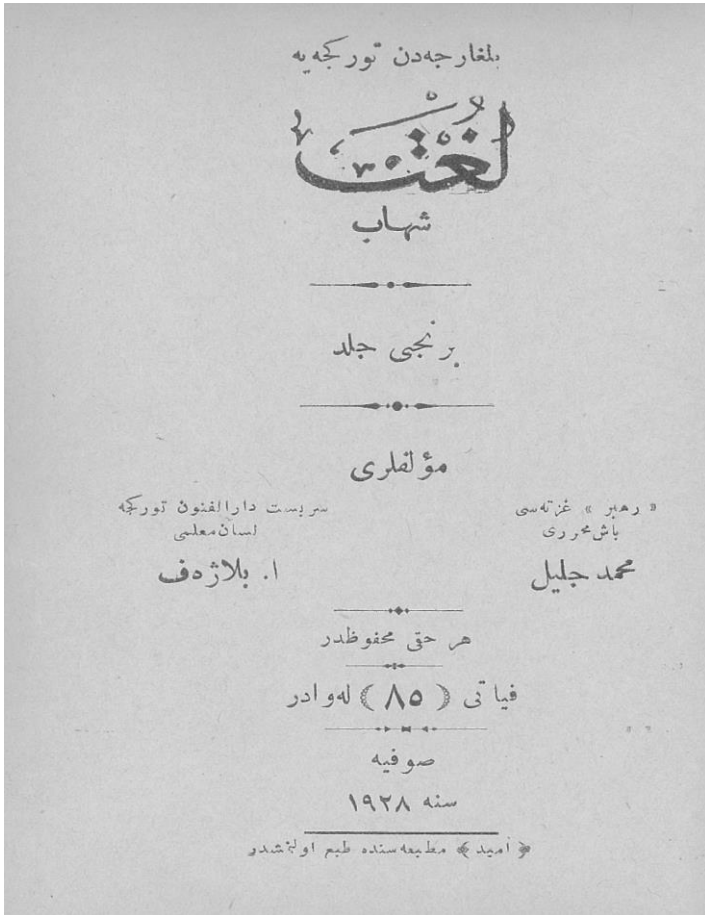 بلغارجه‌دن تورکجه‌یه
لُغَتْ
شهاب
برنجی جلد
مؤلفلری
« رهبر » غزته‌سی
باش محرری
محمد جلیل
سربست دارالفنون تورکجه
لسان معلمی
ا. بلاژه‌ف
هر حقی محفوظدر
فیاتی ( ٨٥ ) له‌وادر
صوفیه
سنه ١٩٢٨
﴿ امید ﴾ مطبعه‌سنده طبع اولنمشدر